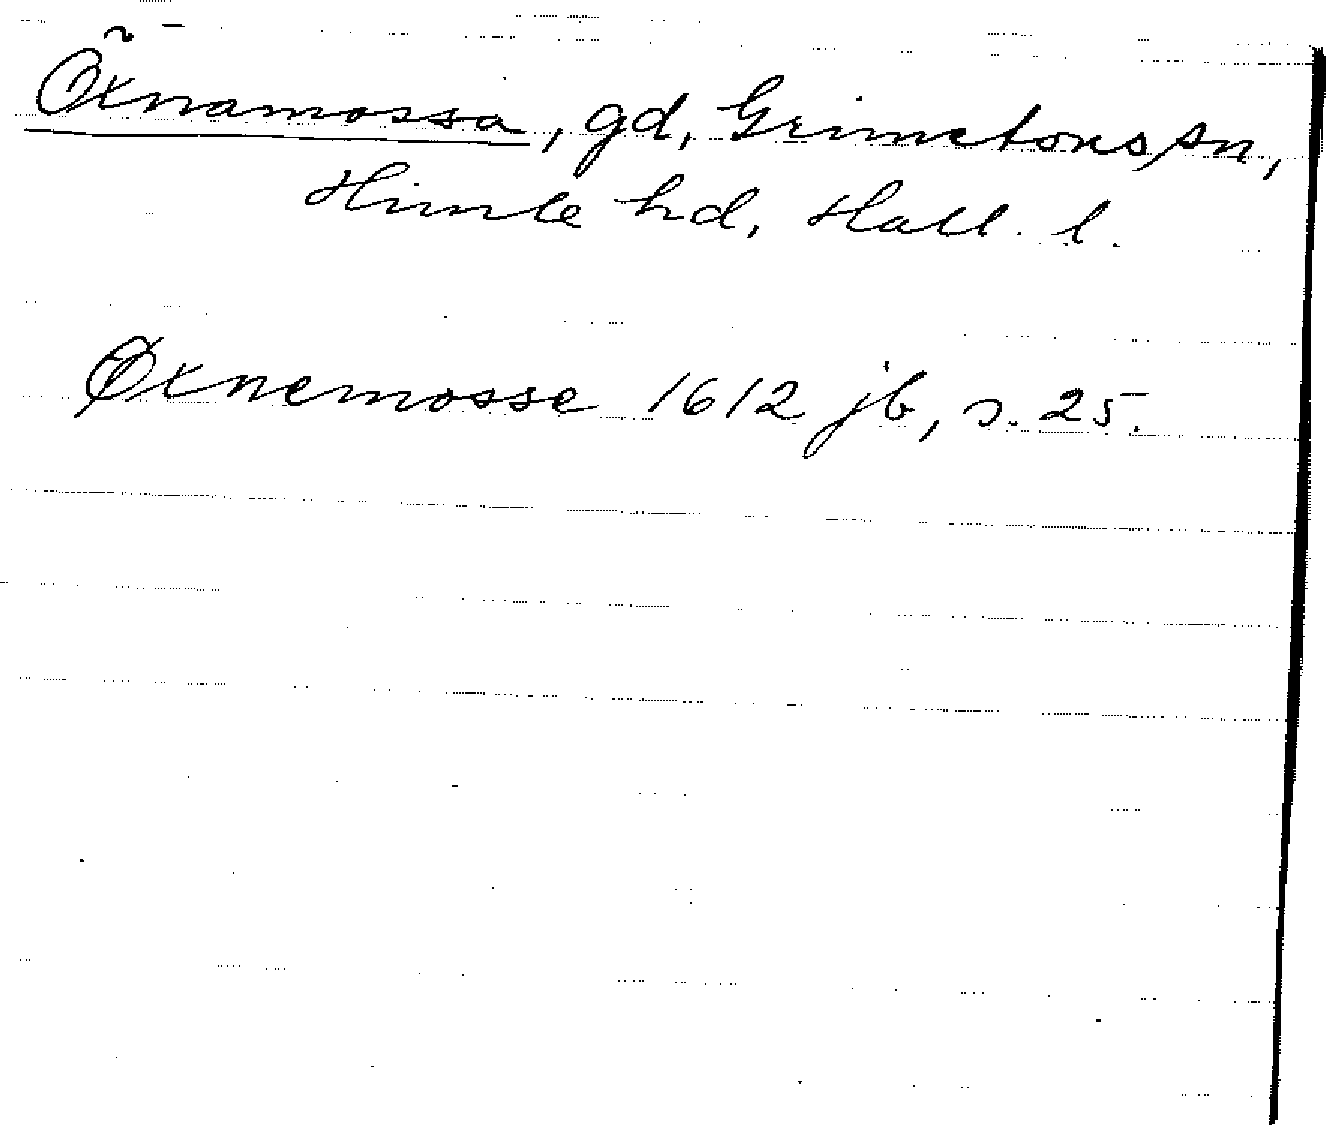 Öxnamossa, gd, Grimetons sn,
Himle hd, Hall. l.
Øxnemosse 1612 jb, s. 25.